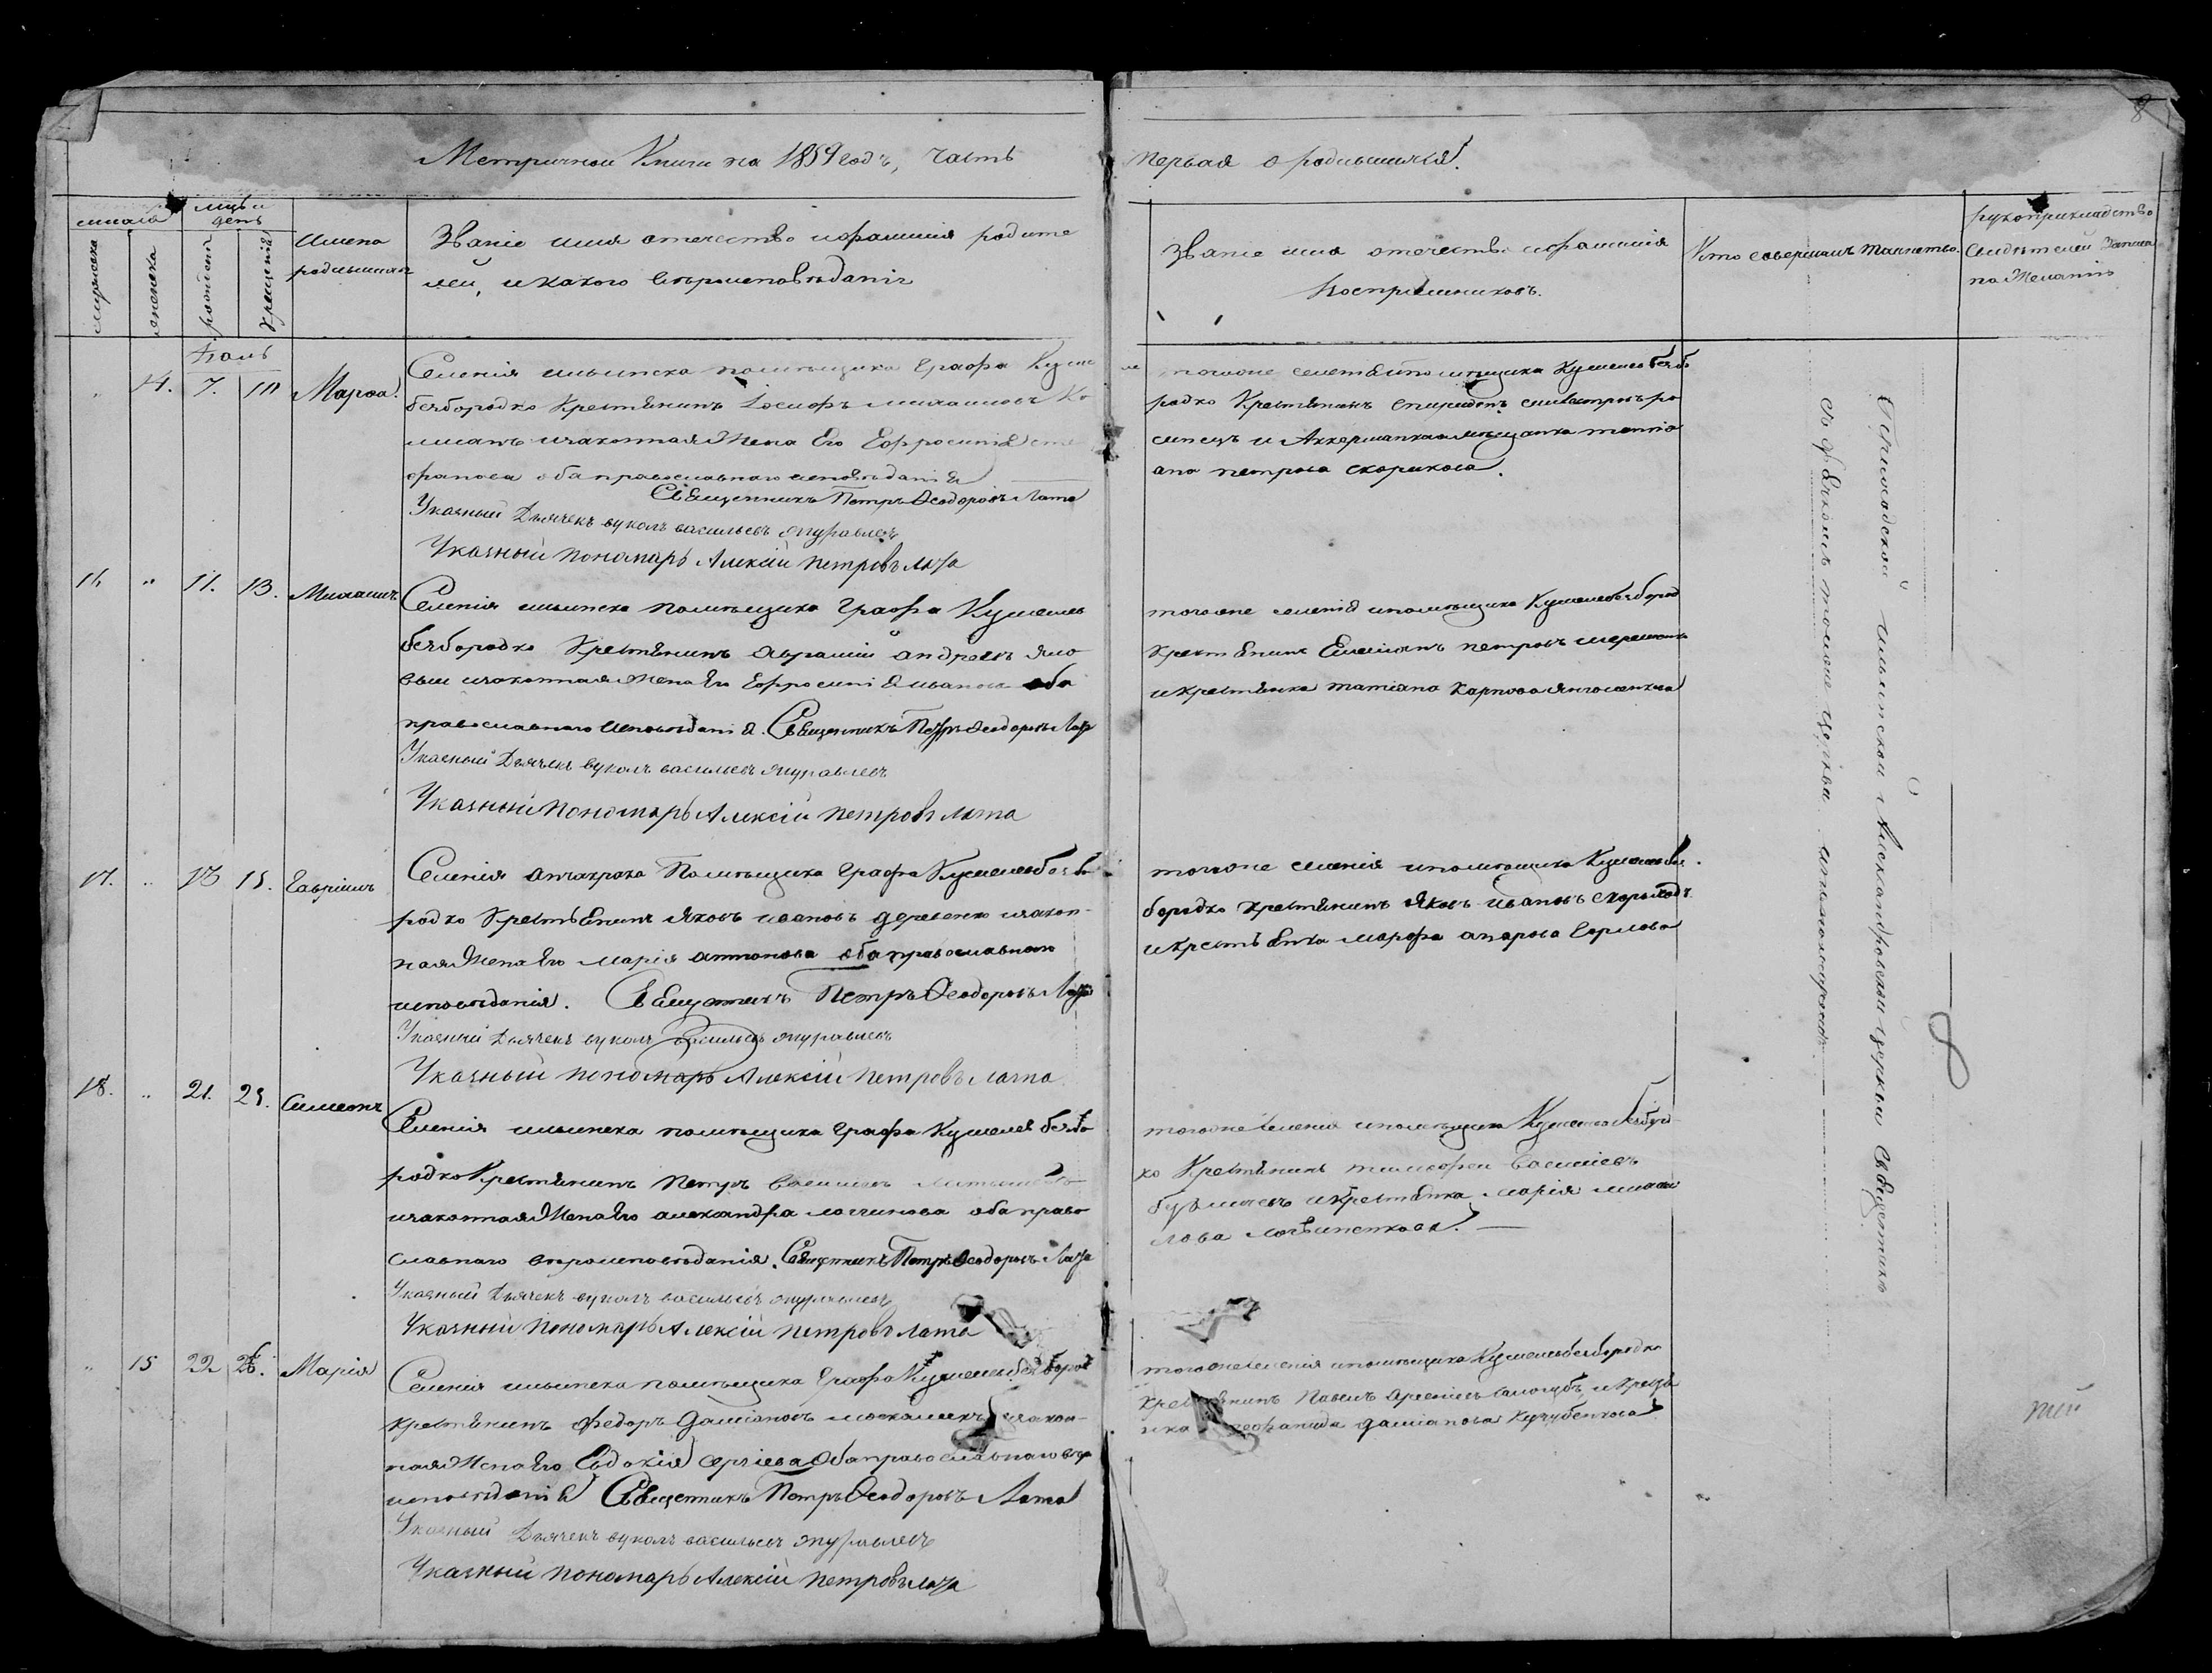 Метричной Книги на 1859 годъ, часть
первая о родившихся.
8
число
мужеска
женска
мцъ и день
рожденія
крещенія
Имена родившихся
Званіе имя отечество и фамилія родите
лей, и какого вѣроисповѣданія
Званіе имя отечество и фамилія
Воспріемниковъ.
Кто совершалъ таинство.
Рукоприкладство
свидѣтелей записи
по желанію
14. 7. 10 Марѳа.
Селенія ильинска помѣщика графа Кушеле
безбородко Крестьянинъ Іосифъ михаиловъ
и законная жена Его Ефросинія
обаправославнаго исповѣданія
Священникъ Петръ Ѳеодоровъ Лата
Указный Дьячекъ вуколъ васильевъ журавлевъ
Указный пономарь Алексій петровъ лата
тогоже селенія и помѣщика Кушелев безбо
родко Крестьянинъ спиридонъ силвестровъ
и Аккерманская мѣщанка
петрова скорикова.
16 " 11. 13. Михаилъ
Селенія ильинска помѣщика графа Кушелев
безбородко Крестьянинъ аврамій андреевъ яло
вый и законная жена Его Ефросинія иванова оба
православнаго исповѣданія. Священникъ Петръ Ѳеодоровъ Лата
Указный Дьячекъ вуколъ васильевъ журавлевъ
Указный пономарь Алексій петровъ лата
тогоже селенія и помѣщика Кушелевбезбород
Крестьянинъ Емеліянъ петровъ
и крестьянка татіяна карпова
17. " 13 15. Гавріилъ
Селенія анчакрака Помѣщика графа Кушелевбезбо
родко Крестьянинъ Яковъ ивановъ деревенко и закон-
ная жена Его марія антонова оба православнаго
исповѣданія. Священникъ Петръ Ѳеодоровъ Лата
Указный Дьячекъ вуколъ васильевъ журавлевъ
Указный пономарь Алексій петровъ лата
тогоже селенія и помѣщика Кушелевбез
бородко крестьянинъ яковъ ивановъ скороходъ
и крестьянка марфа
18. " 21. 25. Симеонъ
Селенія ильинска помѣщика графа Кушелев безбо
родко Крестьянинъ петръ василіевъ
и законная жена Его александра логгинова оба право
славнаго вѣроисповѣданія. Священникъ Петръ Ѳеодоровъ Лата
Указный Дьячекъ вуколъ васильевъ журавлевъ
Указный пономарь Алексій петровъ лата
тогоже селенія и помѣщика Кушелев безбород
ко Крестьянинъ тимофей василіевъ
и крестьянка марія михаи
лова
" 15 22 26. Марія
Селенія ильинска помѣщика графа Кушелевбезбород
крестьянинъ федоръ даміановъ москаликъ и закон-
ная жена Его Евдокія сергіева оба православнаго вѣро
исповѣданія Священникъ Петръ Ѳеодоровъ Лата
Указный Дьячекъ вуколъ васильевъ журавлевъ
Указный пономарь Алексій петровъ лата
тогоже селенія и помѣщика Кушелевбезбородко
крестьянинъ Павелъ арсеніевъ и крестья
нка даміанова
ильинской Александровской церкви Священникъ
съ дьячкомъ тоюже церкви и пономаремъ
8